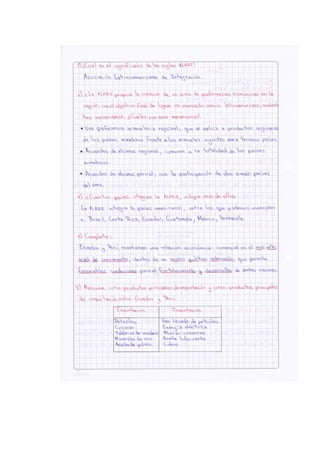 1) ¿Cuál es el significado de las siglas ALADI?
Asociación Latinoamericana de Integración
2) ¿La ALADI propicia la creación de un área de preferencias económicas en la
región, con el objetivo final de lograr un mercado común latinoamericano, mediante
tres mecanismos ¿Cuáles son esos mecanismos?
• Una preferencia arancelaria regional, que se aplica a productos originarios
de los países miembros frente a los aranceles vigentes para terceros países.
• Acuerdos de alcance regional, comunes a la totalidad de los países
miembros.
• Acuerdos de alcance parcial, con la participación de dos o más países
del área.
3) ¿Cuántos países integran la ALADI, indique unos de ellos.
La ALADI integra países miembros, entre los que podemos mencionar
a Brasil, Costa Rica, Ecuador, Guatemala, México, Venezuela
4) Complete:
Ecuador y Perú mantienen una relación económica comercial en el más alto
nivel de crecimiento, dentro de un marco político adecuado que permite
favorables condiciones para el fortalecimiento y desarrollo de ambas naciones.
5) Mencione cinco productos principales de exportación y cinco productos principales
de importación entre Ecuador y Perú
Exportación Importación
Petróleo Gas licuado de petróleo
Cocinas Energía eléctrica
Tableros de madera
Minerales de oro Aceite lubricante
Aceite de palma Cobre